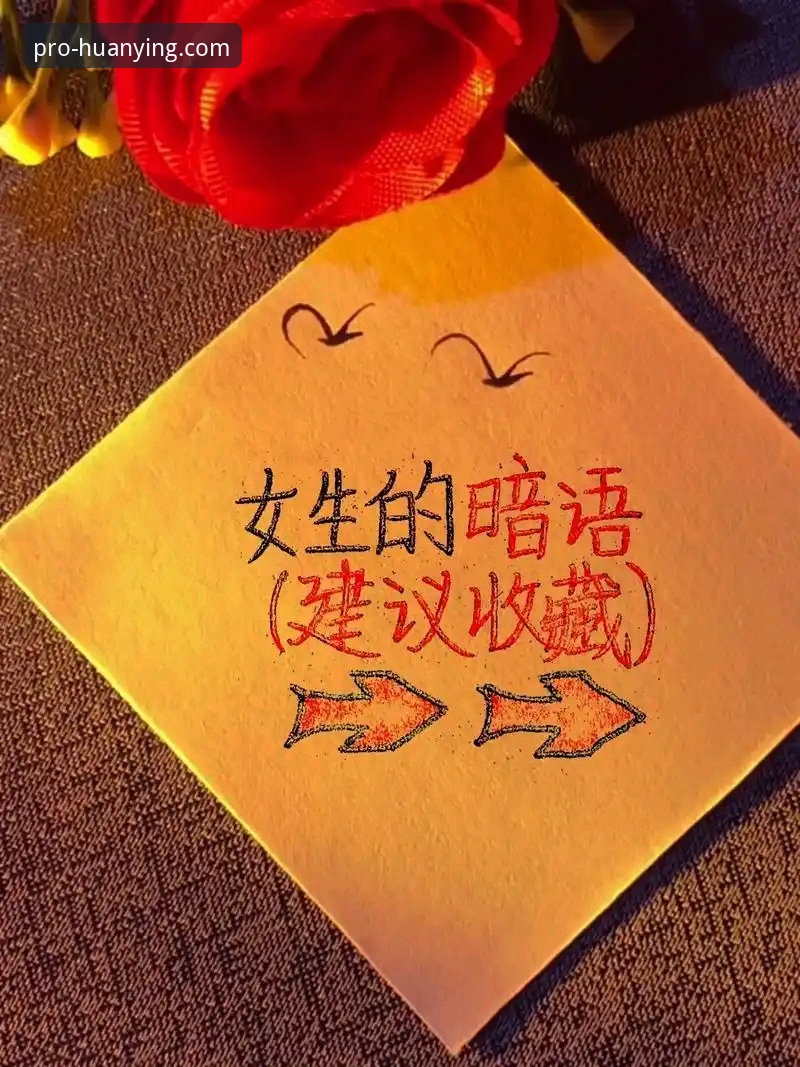 pro-huanying.com
女生的暗语
(建议收藏)